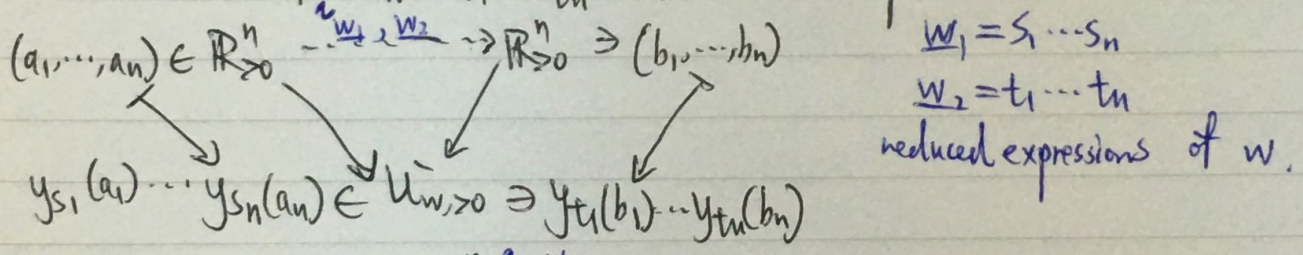 (a₁,⋯,aₙ) ∈ ℝⁿ_{>0} --- w̲₁, w̲₂ --→ ℝⁿ_{>0} ∋ (b₁,⋯,bₙ)
y_{s₁}(a₁)⋯y_{sₙ}(aₙ) ∈ U⁻_{w,>0} ∋ y_{t₁}(b₁)⋯y_{tₙ}(bₙ)
w̲₁ = s₁⋯sₙ
w̲₂ = t₁⋯tₙ
reduced expressions of w.